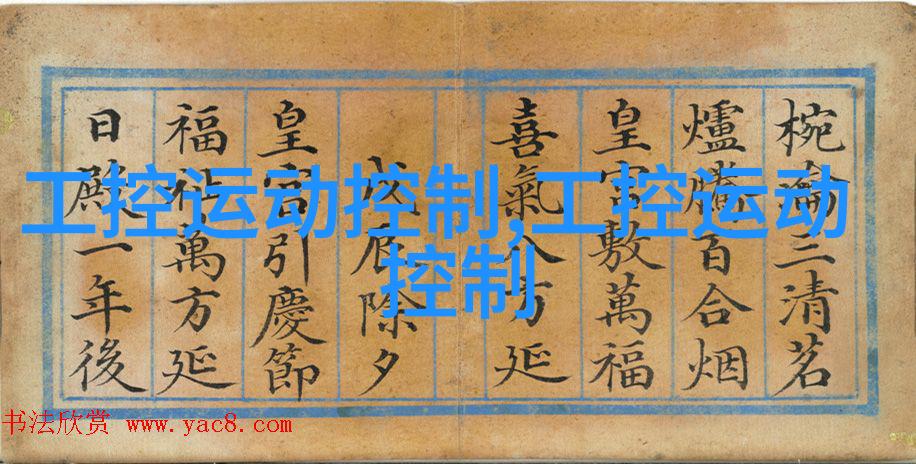 椀瀹三清茗
爐騰百合烟
皇宮敷萬福
喜氣八方延
戊辰除夕
皇宮引慶節
福祉萬方延
日殿一年後
工控运动控制,工控运动
控制
书法欣赏 www.yac8.com